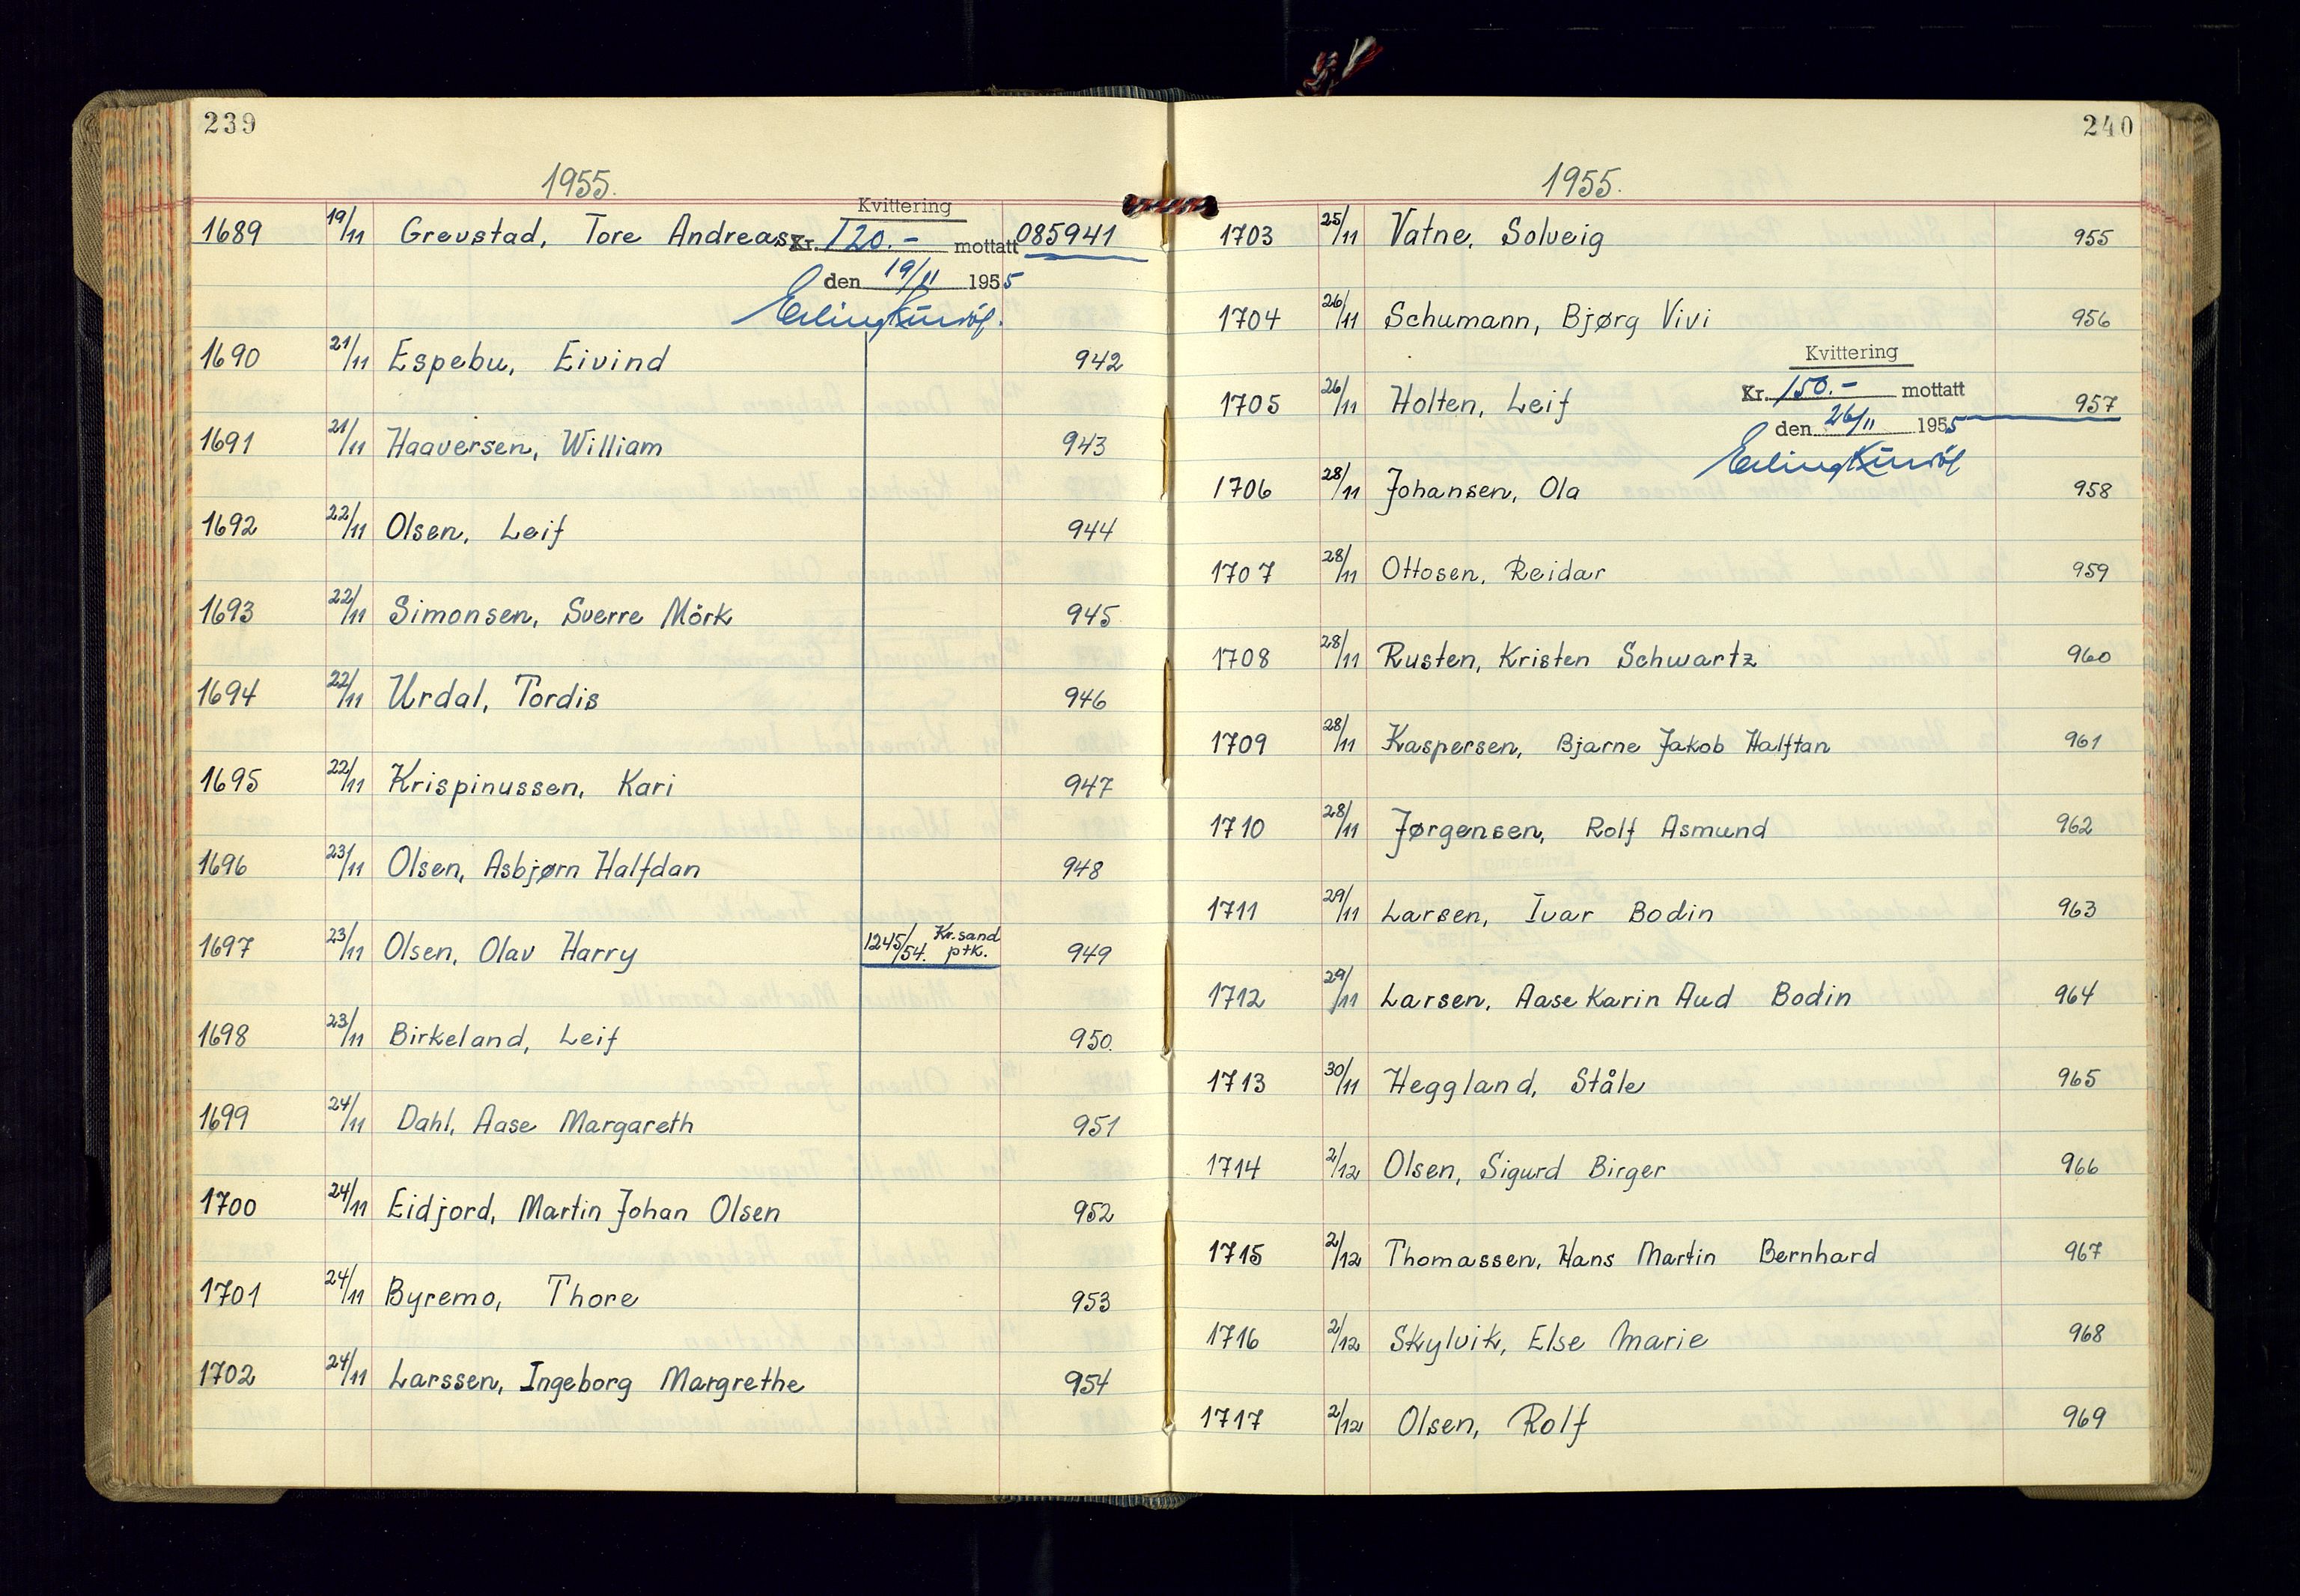 239
1955.
Kvittering
1689 19/11 Grevstad, Tore Andreas Kr. 120.- mottatt 085941
den 19/11 1955
1690 21/11 Espebu, Eivind 942
1691 21/11 Haaversen, William 943
1692 22/11 Olsen, Leif 944
1693 22/11 Simonsen, Sverre Mörk 945
1694 22/11 Urdal, Tordis 946
1695 22/11 Krispinussen, Kari 947
1696 23/11 Olsen, Asbjørn Halfdan 948
1697 23/11 Olsen, Olav Harry 1245/54. Kr.sand ptk. 949
1698 23/11 Birkeland, Leif 950.
1699 24/11 Dahl, Aase Margareth 951
1700 24/11 Eidjord, Martin Johan Olsen 952
1701 24/11 Byremo, Thore 953
1702 24/11 Larssen, Ingeborg Margrethe 954
240
1955.
1703 25/11 Vatne, Solveig 955
1704 26/11 Schumann, Bjørg Vivi 956
Kvittering
Kr. 150.- mottatt
1705 26/11 Holten, Leif 957
den 26/11 1955
1706 28/11 Johansen, Ola 958
1707 28/11 Ottosen, Reidar 959
1708 28/11 Rusten, Kristen Schwartz 960
1709 28/11 Kaspersen, Bjarne Jakob Halftan 961
1710 28/11 Jørgensen, Rolf Asmund 962
1711 29/11 Larsen, Ivar Bodin 963
1712 29/11 Larsen, Aase Karin Aud Bodin 964
1713 30/11 Heggland, Ståle 965
1714 2/12 Olsen, Sigurd Birger 966
1715 2/12 Thomassen, Hans Martin Bernhard 967
1716 2/12 Skylvik, Else Marie 968
1717 2/12 Olsen, Rolf 969